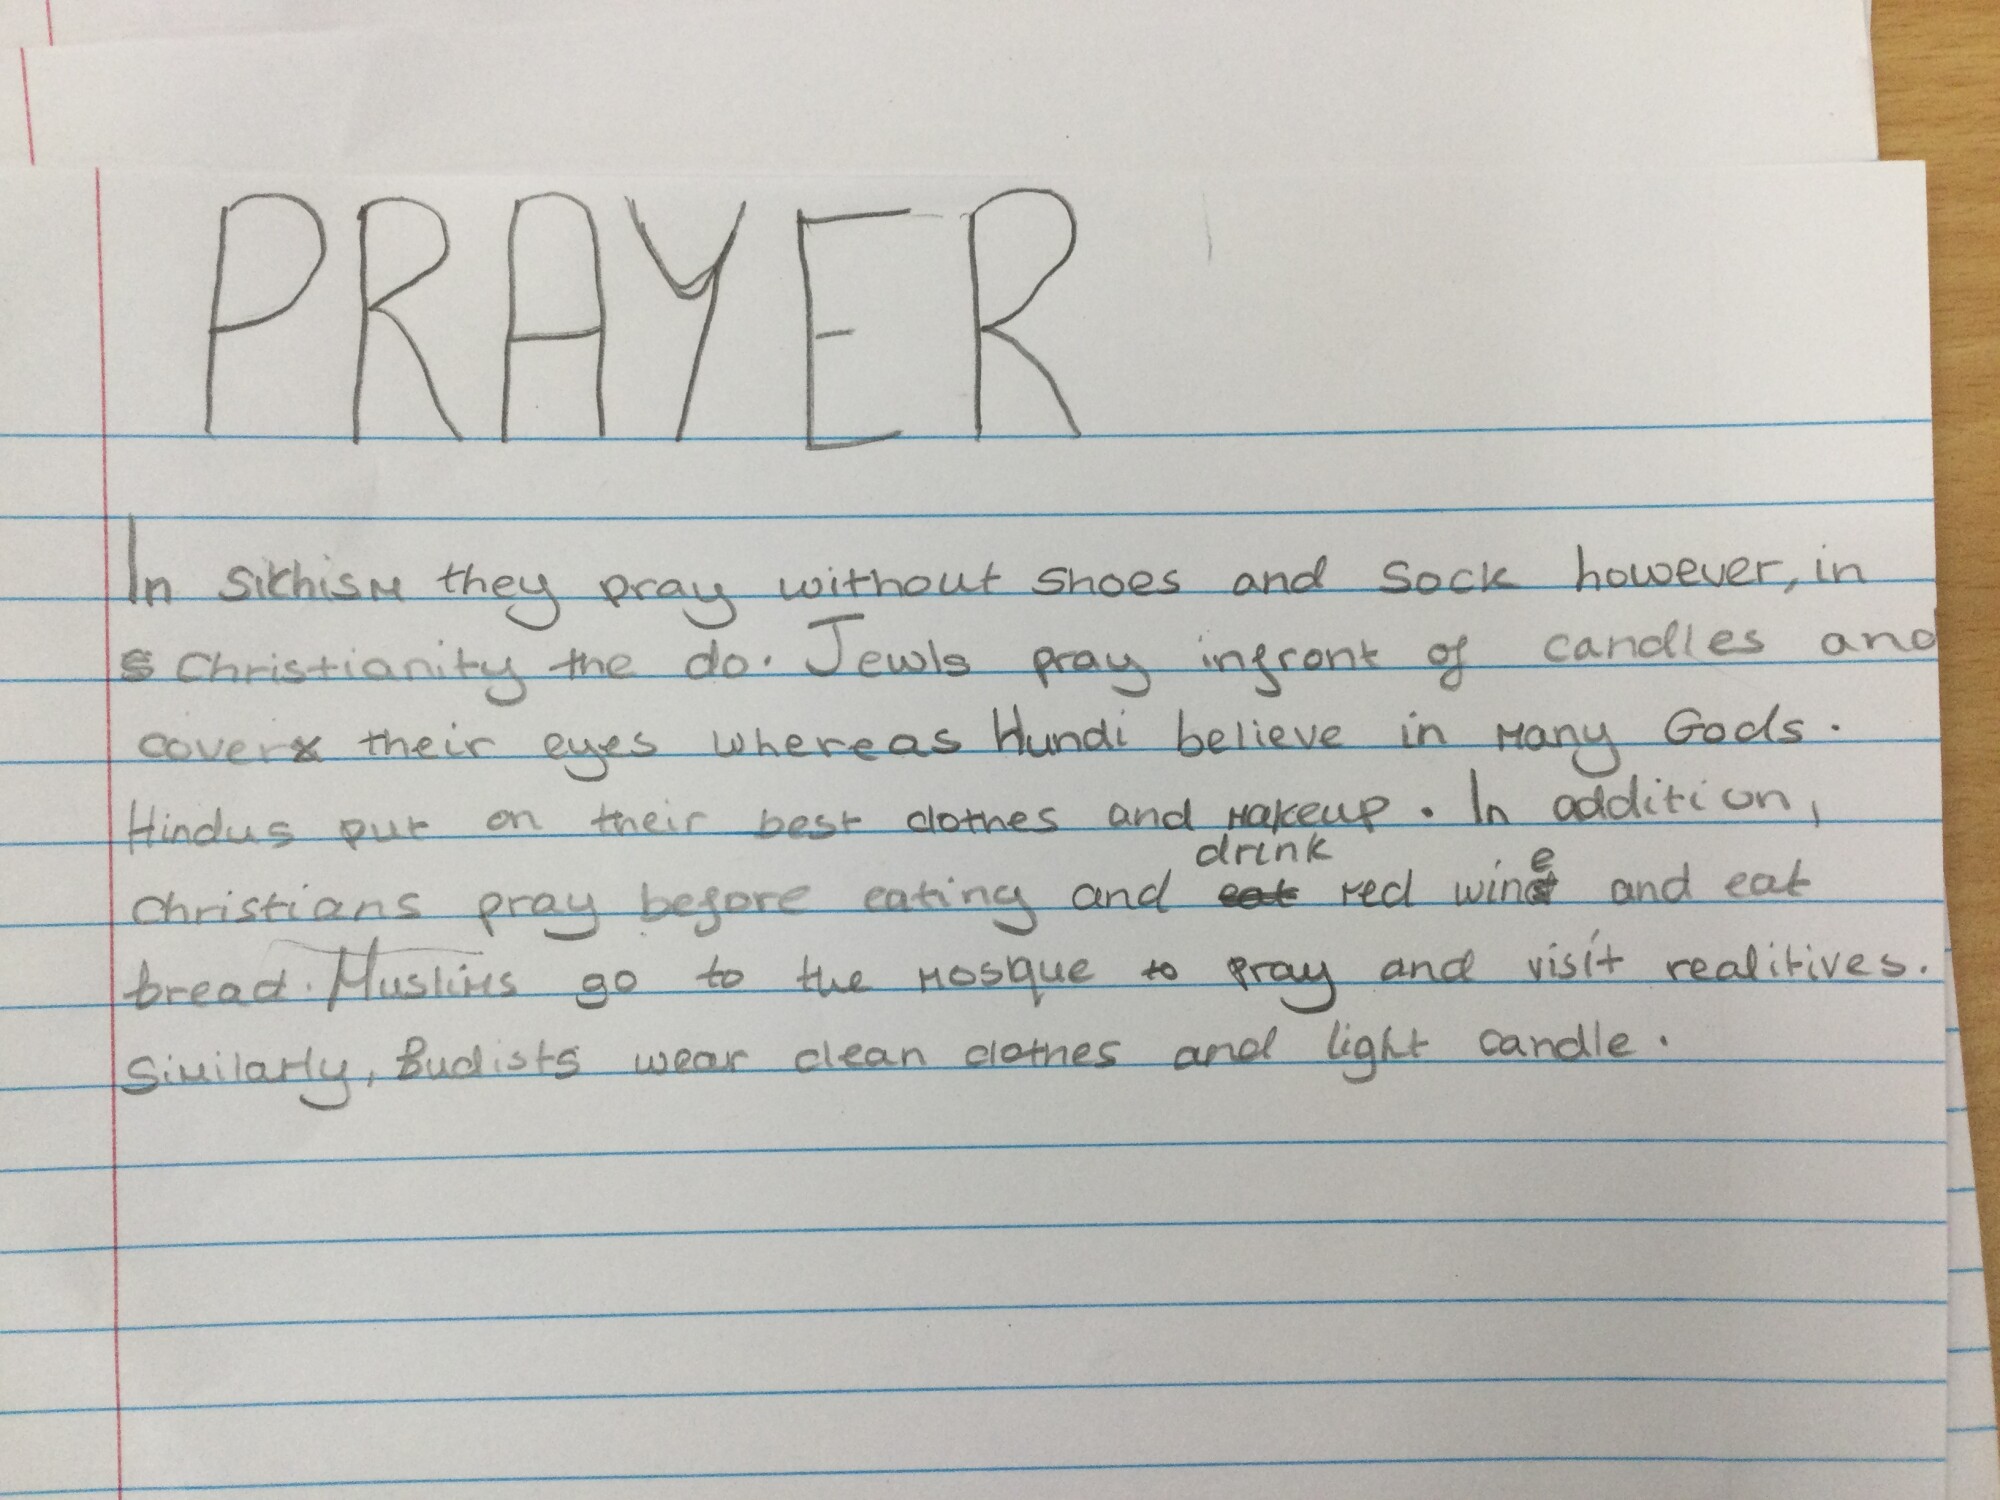 PRAYER
In sikhism they pray without shoes and sock however, in
Christianity the do. Jewls pray infront of candles and
cover their eyes whereas Hundi believe in many Gods.
Hindus put on their best clothes and makeup. In addition,
drink
christians pray before eating and eat red wine and eat
bread. Muslims go to the mosque to pray and visit realitives.
Similarly, Budists wear clean clothes and light candle.